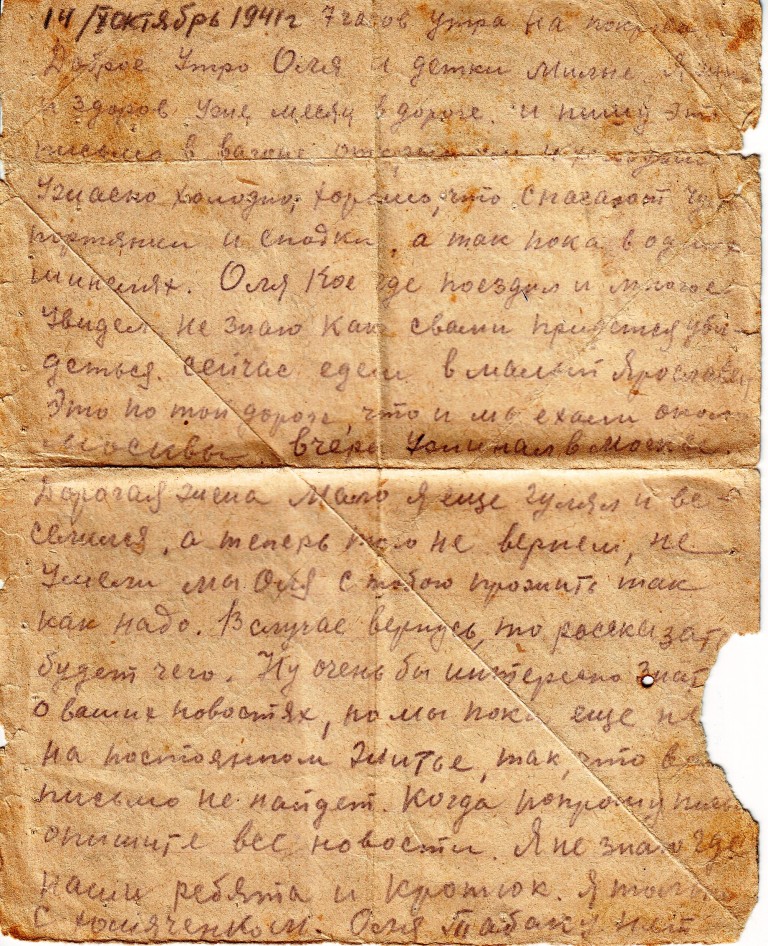 14/октябрь 1941г 7 часов утра на покрова
Доброе Утро Оля и детки милые. Я жив
и здоров уже месяц в дороге. и пишу это
письмо в вагоне
Ужасно холодно, хорошо, что спасают
портянки и сподки, а так пока в одних
шинелях. Оля Кое где поездил и многое
увидел не знаю как свами придется уви-
деться. сейчас едем в малый Ярославец
Это по той дороге, что и мы ехали около
Москвы. вчера Ужинал в Москве.
Дорогая жена Мало я еще гулял и ве-
селился, а теперь того не вернем, не
умели мы Оля с тобою прожить так
как надо. В случае вернусь, то рассказать
будет чего. Ну очень бы интересно знать
о ваших новостях, но мы пока еще не
на постоянном житье, так, что
письмо не найдет. Когда попрошу
опишите все новости. Я не знаю где
наши ребята и Кротюк. Я только
С Оля Табаку нет